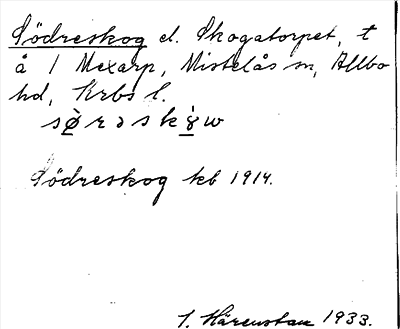 Södreskog el. Skogatorpet, t
å 1 Mexarp, Mistelås sn, Allbo
hd, Krbs l.
sørəskɣw
Södreskog kb 1914.
1. Härenstam 1933.